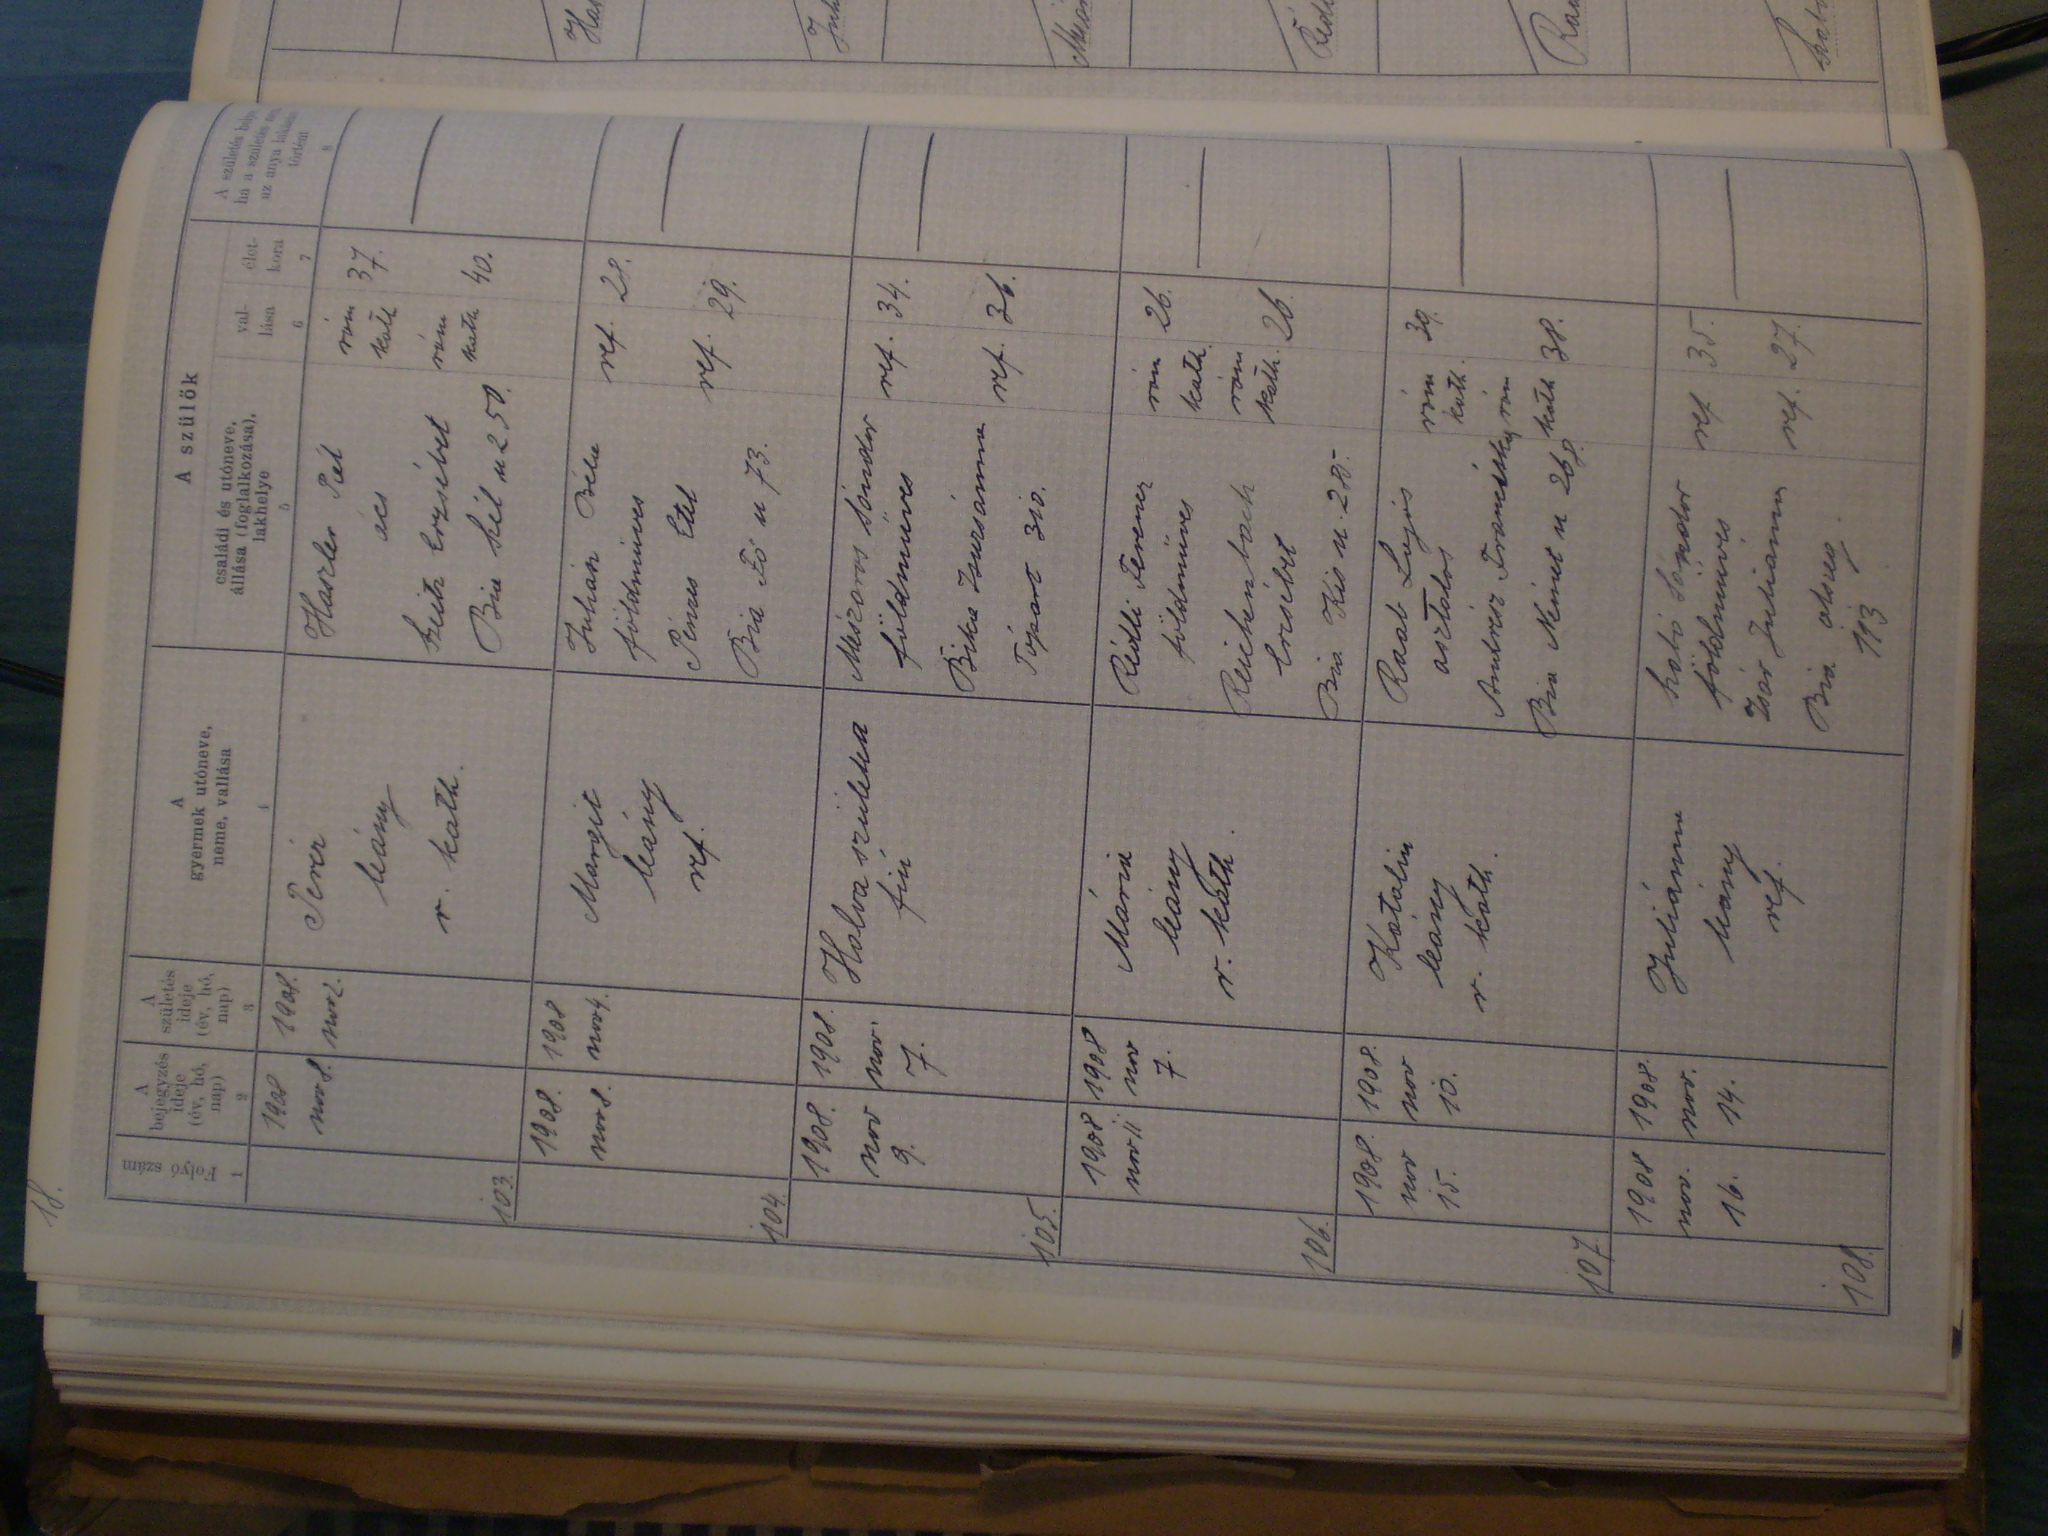 18.
Folyó szám
A bejegyzés ideje (év, hó, nap)
A születés ideje (év, hó, nap)
A gyermek utóneve, neme, vallása
A szülők
családi és utóneve, állása (foglalkozása), lakhelye
vallása
életkora
A születés
1 2 3 4 5 6 7 8
103.
1908 nov 8.
1908. nov 2.
Teréz
leány
r. kath.
Haszler Pál
ács
róm kath 37.
Szeitz Erzsébet
róm kath 40.
Bia Szél u 250.
104.
1908. nov 8.
1908 nov 4.
Margit
leány
ref.
Juhász Béla
földmüves
ref. 28.
Pénzes Etel
ref. 29.
Bia Fö u 73.
105.
1908. nov 9.
1908. nov. 7.
Halva született
fiú
Mészáros Sándor
földmüves
ref. 34.
Bika Zsuzsanna
ref. 36.
Tópart 310.
106.
1908 nov 11.
1908 nov 7.
Mária
leány
r. kath.
Rédli Ferencz
földmüves
róm kath. 26.
Reichenbach
Erzsébet
róm kath. 26.
Bia Kis u. 285.
107.
1908. nov 15.
1908. nov 10.
Katalin
leány
r. kath.
Raab Lajos
asztalos
róm kath. 39.
Franciska róm kath 38.
Bia Német u 268
108.
1908 nov. 16.
1908. nov. 14.
Juliánna
leány
ref.
Szabó Sándor
földmüves
ref 35.
Juliánna
ref. 27.
Bia
113